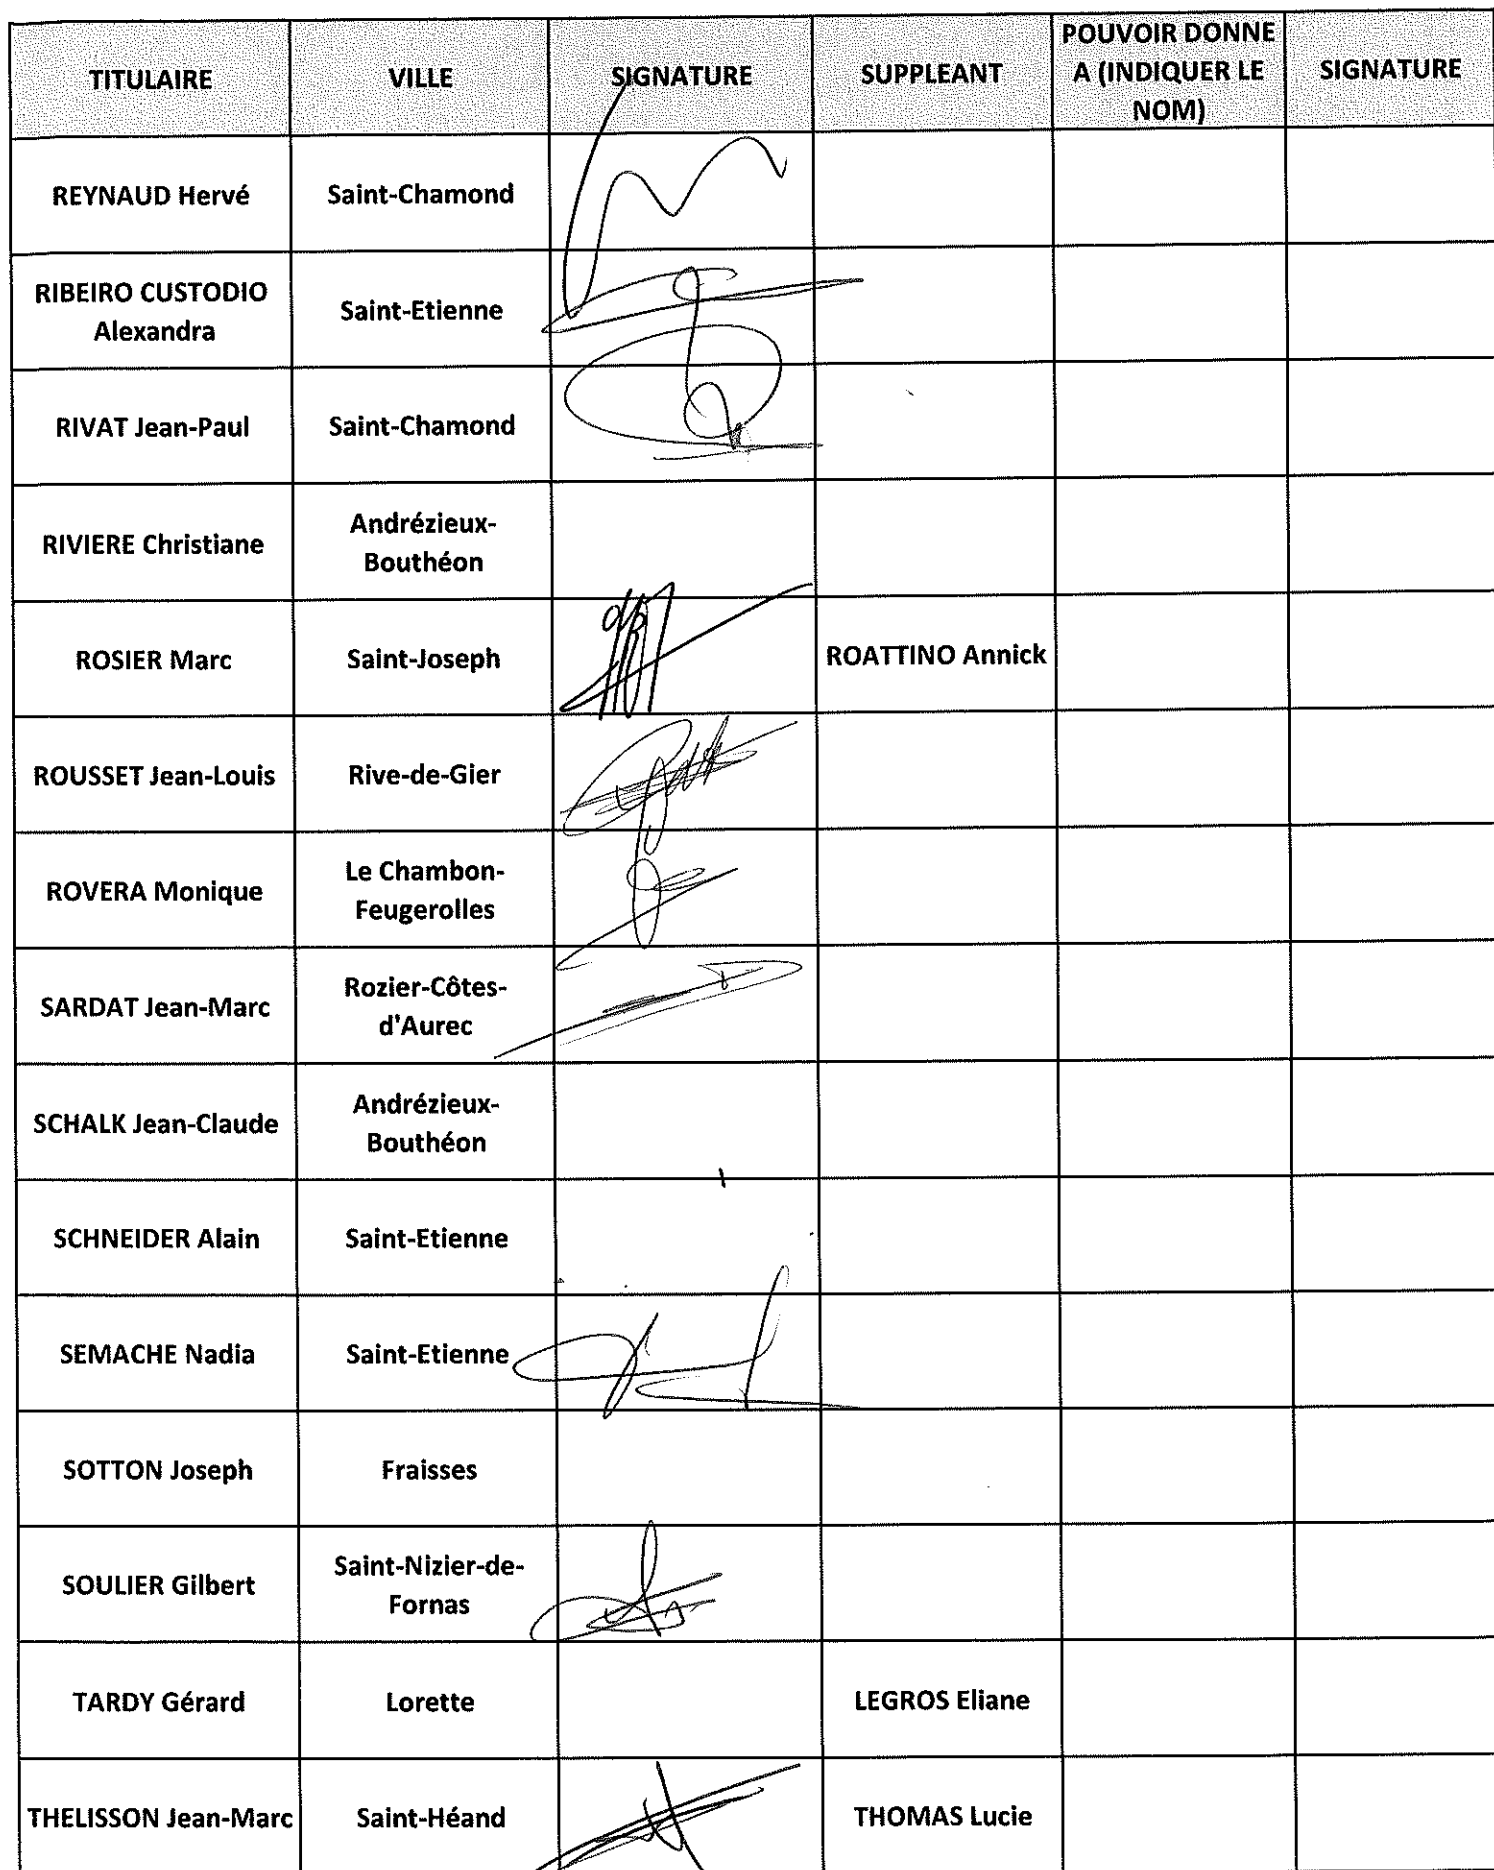 TITULAIRE VILLE SIGNATURE SUPPLEANT POUVOIR DONNE A (INDIQUER LE NOM) SIGNATURE
REYNAUD Hervé Saint-Chamond
RIBEIRO CUSTODIO Alexandra Saint-Etienne
RIVAT Jean-Paul Saint-Chamond
RIVIERE Christiane Andrézieux-Bouthéon
ROSIER Marc Saint-Joseph ROATTINO Annick
ROUSSET Jean-Louis Rive-de-Gier
ROVERA Monique Le Chambon-Feugerolles
SARDAT Jean-Marc Rozier-Côtes-d'Aurec
SCHALK Jean-Claude Andrézieux-Bouthéon
SCHNEIDER Alain Saint-Etienne
SEMACHE Nadia Saint-Etienne
SOTTON Joseph Fraisses
SOULIER Gilbert Saint-Nizier-de-Fornas
TARDY Gérard Lorette LEGROS Eliane
THELISSON Jean-Marc Saint-Héand THOMAS Lucie